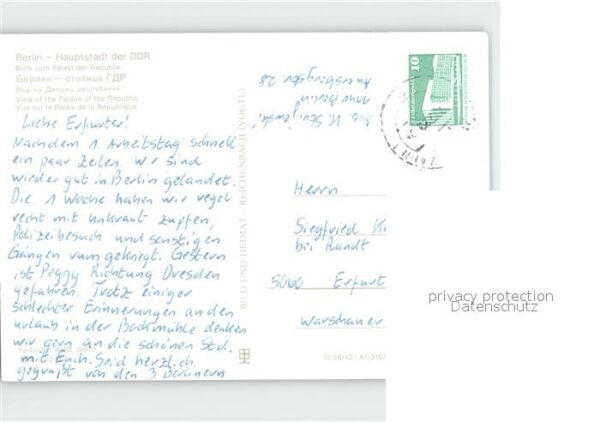 Berlin – Hauptstadt der DDR
Blick zum Palast der Republik
Берлин – столица ГДР
Вид на Дворец республики
View of the Palace of the Republic
Vue sur le Palais de la République
Liebe Erfurter!
Nachdem 1. Arbeitstag schnell
ein paar Zeilen. Wir sind
wieder gut in Berlin gelandet.
Die 1 Woche haben wir
recht mit Unkraut zupfen,
Polizeibesuch und sonstigen
Gängen rumgekriegt. Gestern
ist Peggy Richtung Dresden
gefahren. Trotz einiger
schlechter Erinnerungen an den
Urlaub in der Bockmühle denken
wir gern an die schönen Std.
mit Euch. Seid herzlich
gegrüßt von den 3 Berlinern
Berlin
BILD UND HEIMAT · REICHENBACH (VOGTL)
Abs. K.
Auersbergstr 28
10
Herrn
Siegfried
bei Randt
5060 Erfurt
Warschauer
privacy protection
Datenschutz